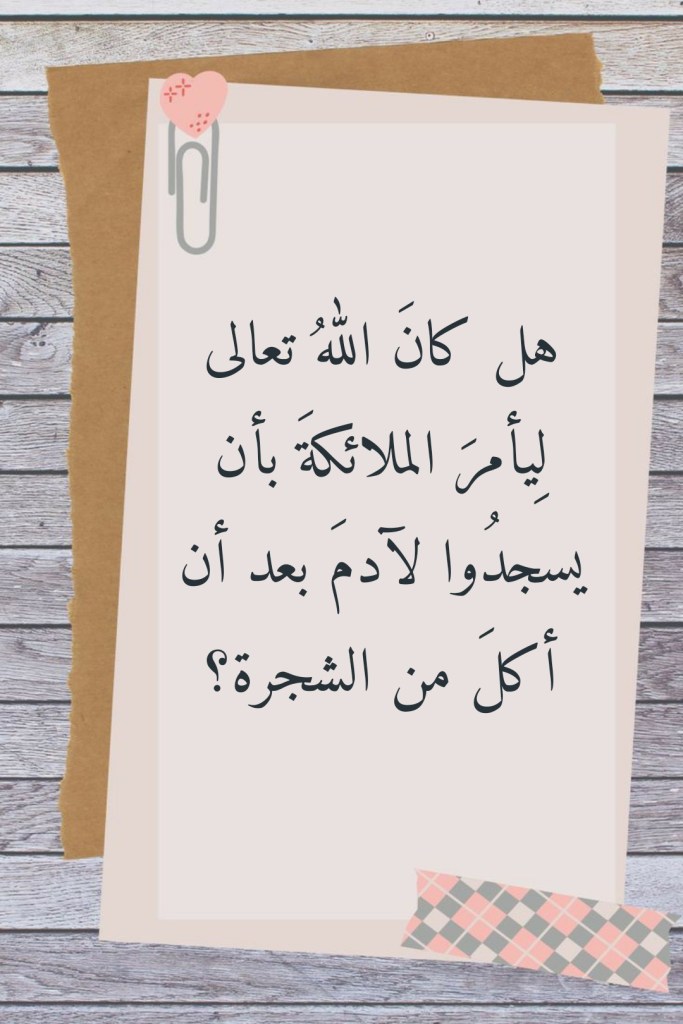 هل كانَ اللهُ تعالى
لِيأمرَ الملائكةَ بأن
يسجدُوا لآدمَ بعد أن
أكلَ من الشجرة؟